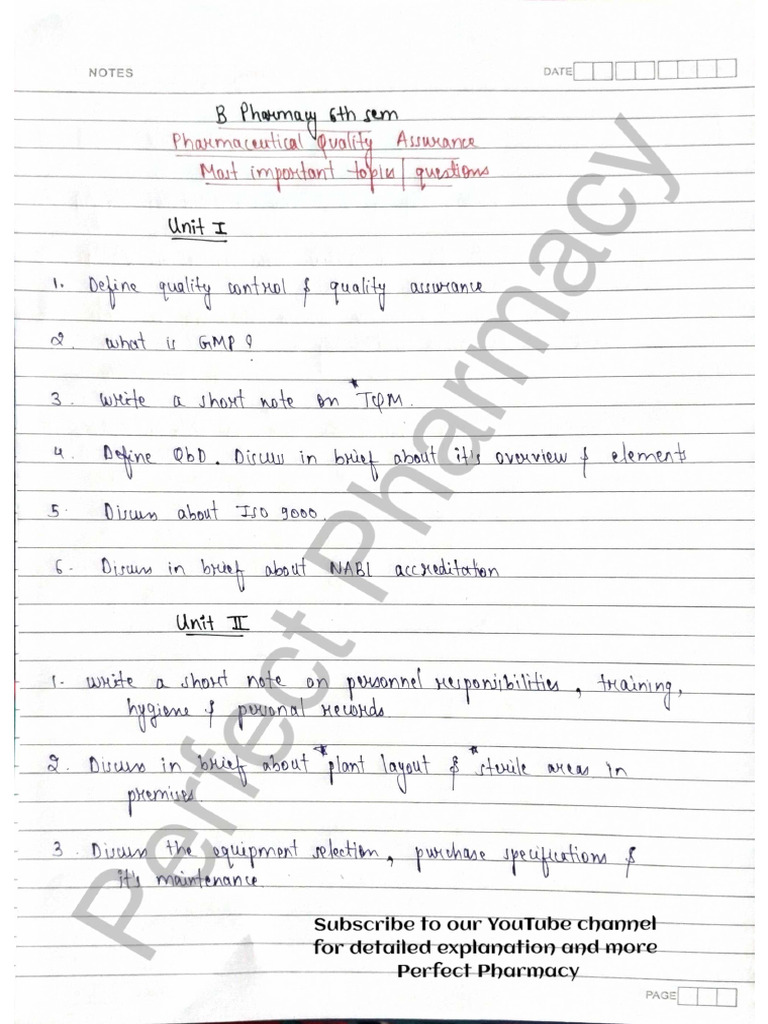 NOTES
DATE
B Pharmacy 6th sem
Pharmaceutical Quality Assurance
Most important topics / questions
Unit I
1. Define quality control & quality assurance
2. What is GMP?
3. Write a short note on *TQM.
4. Define QbD. Discuss in brief about it's overview & elements
5. Discuss about ISO 9000.
6. Discuss in brief about NABL accreditation
Unit II
1. Write a short note on personnel responsibilities, training,
hygiene & personal records.
2. Discuss in brief about *plant layout & *sterile areas in
premises.
3. Discuss the equipment selection, purchase specifications &
it's maintenance.
Perfect Pharmacy
Subscribe to our YouTube channel
for detailed explanation and more
Perfect Pharmacy
PAGE